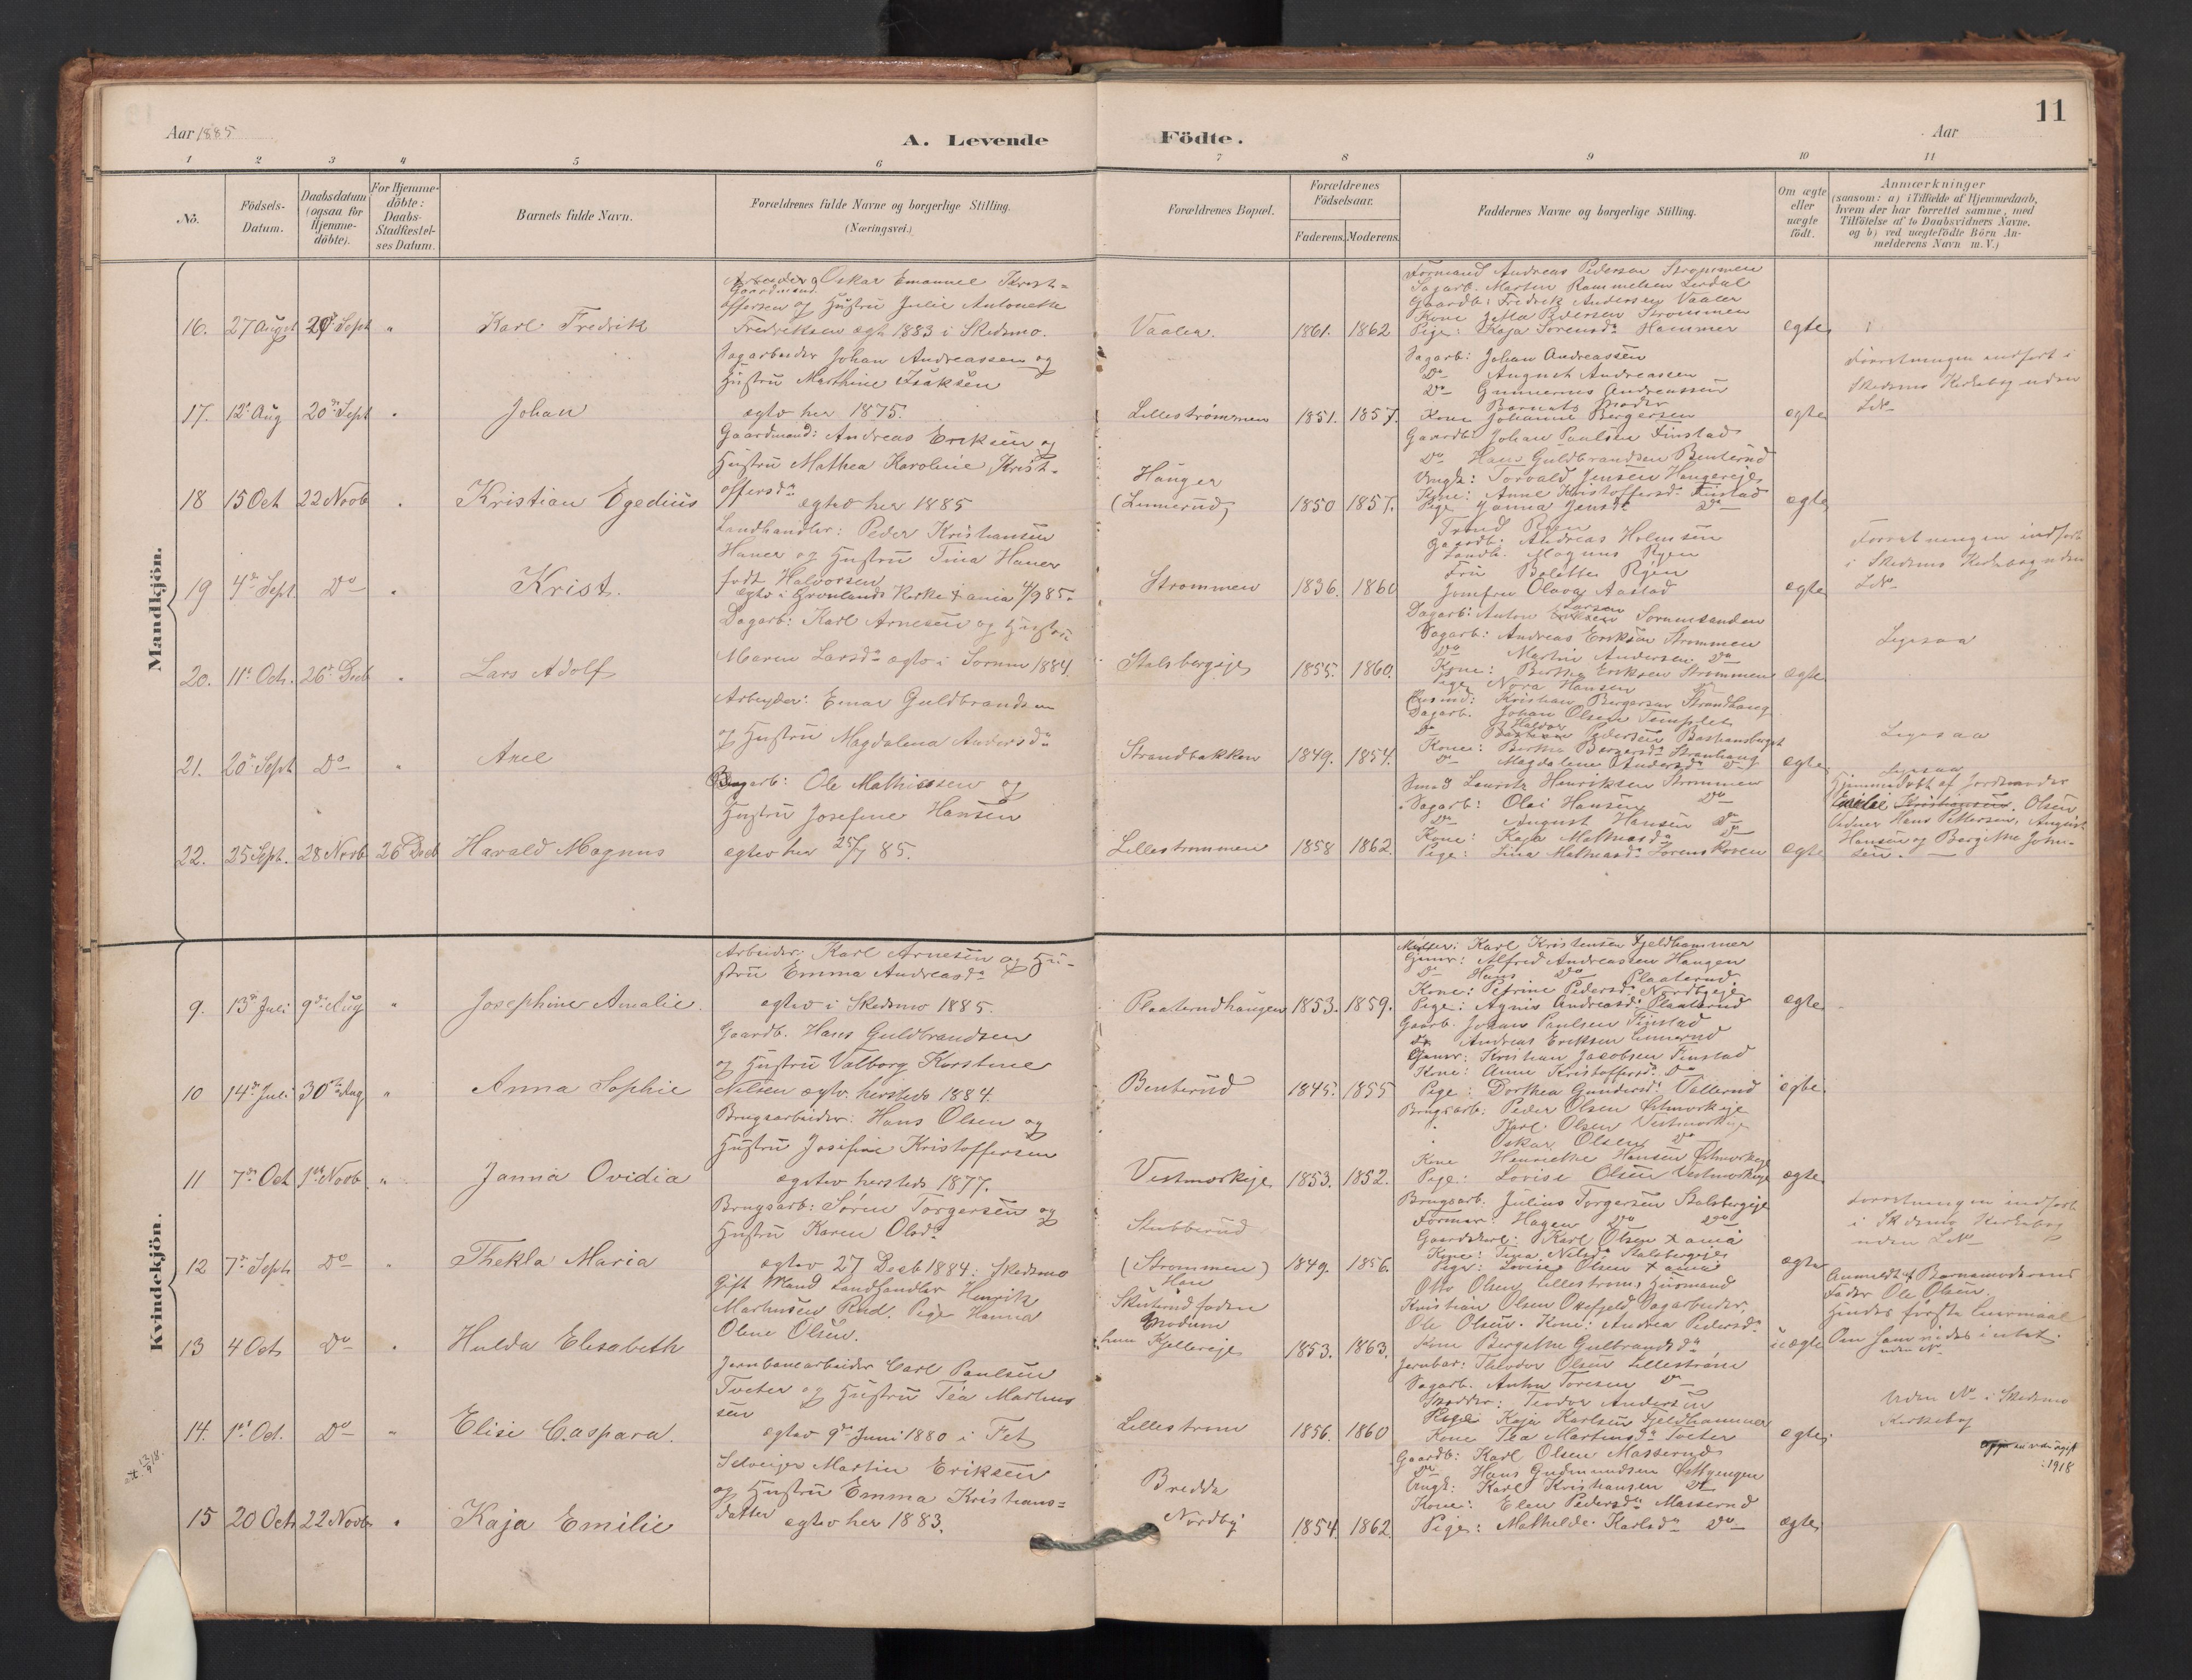 Aar 1885
A. Levende Födte.
Aar
11
1 2 3 4 5 6 7 8 9 10 11
No.
Födsels-Datum.
Daabsdatum (ogsaa for Hjemme-döbte).
For Hjemme-döbte: Daabs-Stadfæstel-ses Datum.
Barnets fulde Navn.
Forældrenes fulde Navne og borgerlige Stilling. (Næringsvei.)
Forældrenes Bopæl.
Forældrenes Födselsaar.
Faderens. Moderens.
Faddernes Navne og borgerlige Stilling.
Om ægte eller uægte födt.
Anmærkninger
(saasom: a) i Tilfælde af Hjemmedaab,
hvem der har forrettet samme, med
Tilföielse af to Daabsvidners Navne,
og b) ved uægtefödte Börn An-
melderens Navn m. V.)
Mandkjön.
16. 27 August Sept " Karl Fredrik
Oskar Emanuel Krist-
offersen og Hustru Julie Antonette
Fredriksen egt. 1883 i Skedsmo.
Vaaler. 1861. 1862
Formand Andreas Pedersen Strømmen
Sagarb. Martin Rammelsen Lerdal
Gaardb: Fredrik Andersen Vaaler
Kone Petersen Strømmen
Pige: Kaja Sorensdr Hammer
egte
17. 12t Aug 20de Sept " Johan
Sagarbeider Johan Andreassen og
Hustru Marthine Isaksen
egtev her 1875.
Lillestrømmen 1851. 1857.
Sagarb: Johan Andreassen
Do August Andreassen
Do Gunnerius Andreassen
Barnets Moder
Kone Johanne Bergersen
egte
Forretningen indført i
Skedsmo Kirkebog uden
18 15 Oct 22 Novb " Kristian Egedius
Gaardmand: Andreas Eriksen og
Hustru Mathea Karoline Krist-
offersdr
egtev her 1885
Hanger
(Linnerud) 1850 1857.
Gaardb: Johan Paulsen Finstad
Do Hans Guldbrandsen Benterud
Ungk: Torvald Jensen Hangereje
Kone: Anne Kristoffersdr Finstad
Pige Janna Jensdr Do
egte
19 4de Sept. Do " Krist.
Landhandler: Peder Kristiansen
Haner og Hustru Tina Haner
født Halvorsen
egtev i Grønlands Kirke Xania 4/9 85.
Strømmen 1836. 1860
Trond Ryen
Gaardb: Andreas Holmsen
Landh. Magnus Ryen
Fru Bolette Ryen
Jomfru Olava Aastad
egte
Forretningen indført
i Skedsmo Kirkebog uden
20. 11t Oct. 26d Decb " Lars Adolf
Dagarb: Karl Arnesen og Hustru
Maren Larsdr egtev i Sørum 1884.
Stalsbergeje 1855. 1860.
Dagarb: Anton Larsen Sørumsanden
Sagarb: Andreas Eriksen Strømmen
Do Martin Andersen Do
Kone: Berthe Eriksen Strømmen
Pige Nora Hansen
egte
Ligesaa
21. 20de Sept Do " Axel
Arbeyder: Einar Guldbrandsen
og Hustru Magdalena Andersdr
Strandbakken 1849. 1854.
Husmd: Kristian Bergersen Strandhaug
Dagarb. Johan Olsen Templet
Do Haldor Pedersen
Kone: Berthe Bergersdr Strandhaug
Do Magdalene Andersdr Do
egte
Ligesaa
22. 25 Sept. 28 Novb 26 Decb Harald Magnus
Brugarb: Ole Mathissen og
Hustru Josefine Hansen
egtev her 25/7 85.
Lillestrømmen 1858 1862.
Smed Lauritz Henriksen Strømmen
Sagarb: Olai Hansen Do
Do August Hansen Do
Kone: Kaja Mathiasdr Do
Pige: Lina Mathiasdr Sørenskoven
egte
Ligesaa
Hjemmedøbt af Jordmoder
Emilie Kristiansen. Olsen
Vidner Hans Pettersen, August
Hansen og Bergithe John-
sen.
Kvindekjön.
9. 13de Juli 9de Aug " Josephine Amalie.
Arbeider. Karl Arnesen og Hu-
stru Emma Andreasdr
egtev i Skedsmo 1885.
Plaaterudhaugen 1853. 1859.
Møller: Karl Kristensen Fjeldhammer
Gmr: Alfred Andreassen Haugen
Do Hans Do Plaaterud.
Kone: Petrine Pedersdr Nordbyeje
Pige: Agnis Andreasdr Plaaterud
egte
10 14de Juli 30te Aug " Anna Sophie
Gaardb. Hans Guldbrandsen
og Hustru Valborg Kirstine
Nilsen egtv. hersteds 1884.
Benterud 1845. 1855
Gaarb. Johan Paulsen Finstad
Do Andreas Eriksen Linnerud
Gmr: Kristian Jacobsen Finstad
Kone: Anne Kristoffersdr Do
Pige: Dorthea Gundersdr Vallerud
egte
11 7de Oct 1ste Novb. " Janna Ovidia
Brugsarbeider: Hans Olsen og
Hustru Josefine Kristoffersen
egtev hersteds 1877.
Vestmorkeje 1853. 1852.
Brugsarb: Peder Olsen Østmorkeje
" Karl Olsen Vestmorkeje
" Oskar Olsen Do
Kone Henriette Hansen Østmorkeje
Pige: Lovise Olsen Vestmorkeje
egte
12 7de Sept Do " Thekla Maria
Brugsarb: Søren Torgersen og
Hustru Karen Olsdr
egtev 27 Decb 1884 i Skedsmo
Stubberud
(Strømmen) 1849. 1856.
Brugsarb. Julius Torgersen Stalsbergeje
Former: Hagen Do Do
Karl Olsen Xania
Kone: Tina Nilsdr Stalsbergeje
Pige: Lovise Olsen Xania
egte
Forretningen indført
i Skedsmo Kirkebog
uden
13 4 Oct Do " Hulda Elisabeth
Gift Mand Landhandler Henrik
Mathisen Rud. Pige Hanna
Oline Olsen.
Han
Modum
hun Kjellereje 1853. 1863.
Otto Olsen Lillestrøm, Husmand
Kristian Olsen Okefjeld Sagarbeider.
Ole Olsen. Kone: Andrea Pedersdr
Kone Bergithe Gulbrandsdr
uegte
Anmeldt af Barnemoderens
Fader Ole Olsen.
Hendes første Leiermaal
Om ham vides intet.
uden No
14. 1st Oct. Do " Elise Caspara.
Jernbanearbeider Carl Paulsen
Tveter og Hustru Téa Martins
sen
egtev 9de Juni 1880 i Fet
Lillestrøm 1856. 1860
Jernbar: Theodor Olsen Lillestrøm
Sagarb. Anton Toresen Do
Skrædder: Teodor Andersen
Pige Kaja Karlsen Fjeldhammer
Kone Tea Martinsdr Tveter
egte
Uden No i Skedsmo
Kirkebog
15 20 Oct 22 Novb " Kaja Emilie
13/9 18.
Selveier Martin Eriksen
og Hustru Emma Kristians-
datter
egtev her 1883.
Bredda
Nordby 1854. 1862.
Gaardb: Karl Olsen Masserud
Do Hans Gudmundsen
Ungk: Karl Kristiansen Do
Kone: Elen Pedersdr Masserud
Pige: Mathilde Karlsdr Do
egte
1918